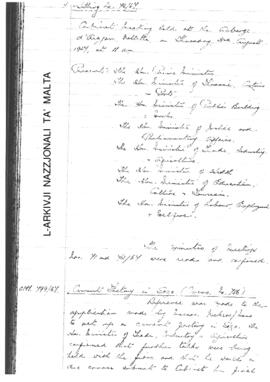 Meeting No. 78/67
Cabinet Meeting held at the Auberge
d'Aragon Valletta on Thursday 3rd August
1967, at 11 am
Present: The Hon. Prime Minister
The Hon Minister of Finance, Customs
& Ports
The Hon Minister of Public Building
& Works
The Hon Minister of Justice and
Parliamentary Affairs
The Hon Minister of Trade, Industry
& Agriculture
The Hon Minister of Health
The Hon. Minister of Education,
Culture & Tourism
The Hon Minister of Labour, Employment
& Welfare.
The minutes of meetings
Nos. 71 and 72/67 were read and confirmed.
L-ARKIVJI NAZZJONALI TA' MALTA
CM. 799/67.
Cement Factory in Gozo
Reference was made to the
application made by Messrs
to set up a cement factory in Gozo. The
Hon Minister of Trade, Industry & Agriculture
confirmed that further talks were being
held with the firm and that he would in
due course submit to Cabinet his final